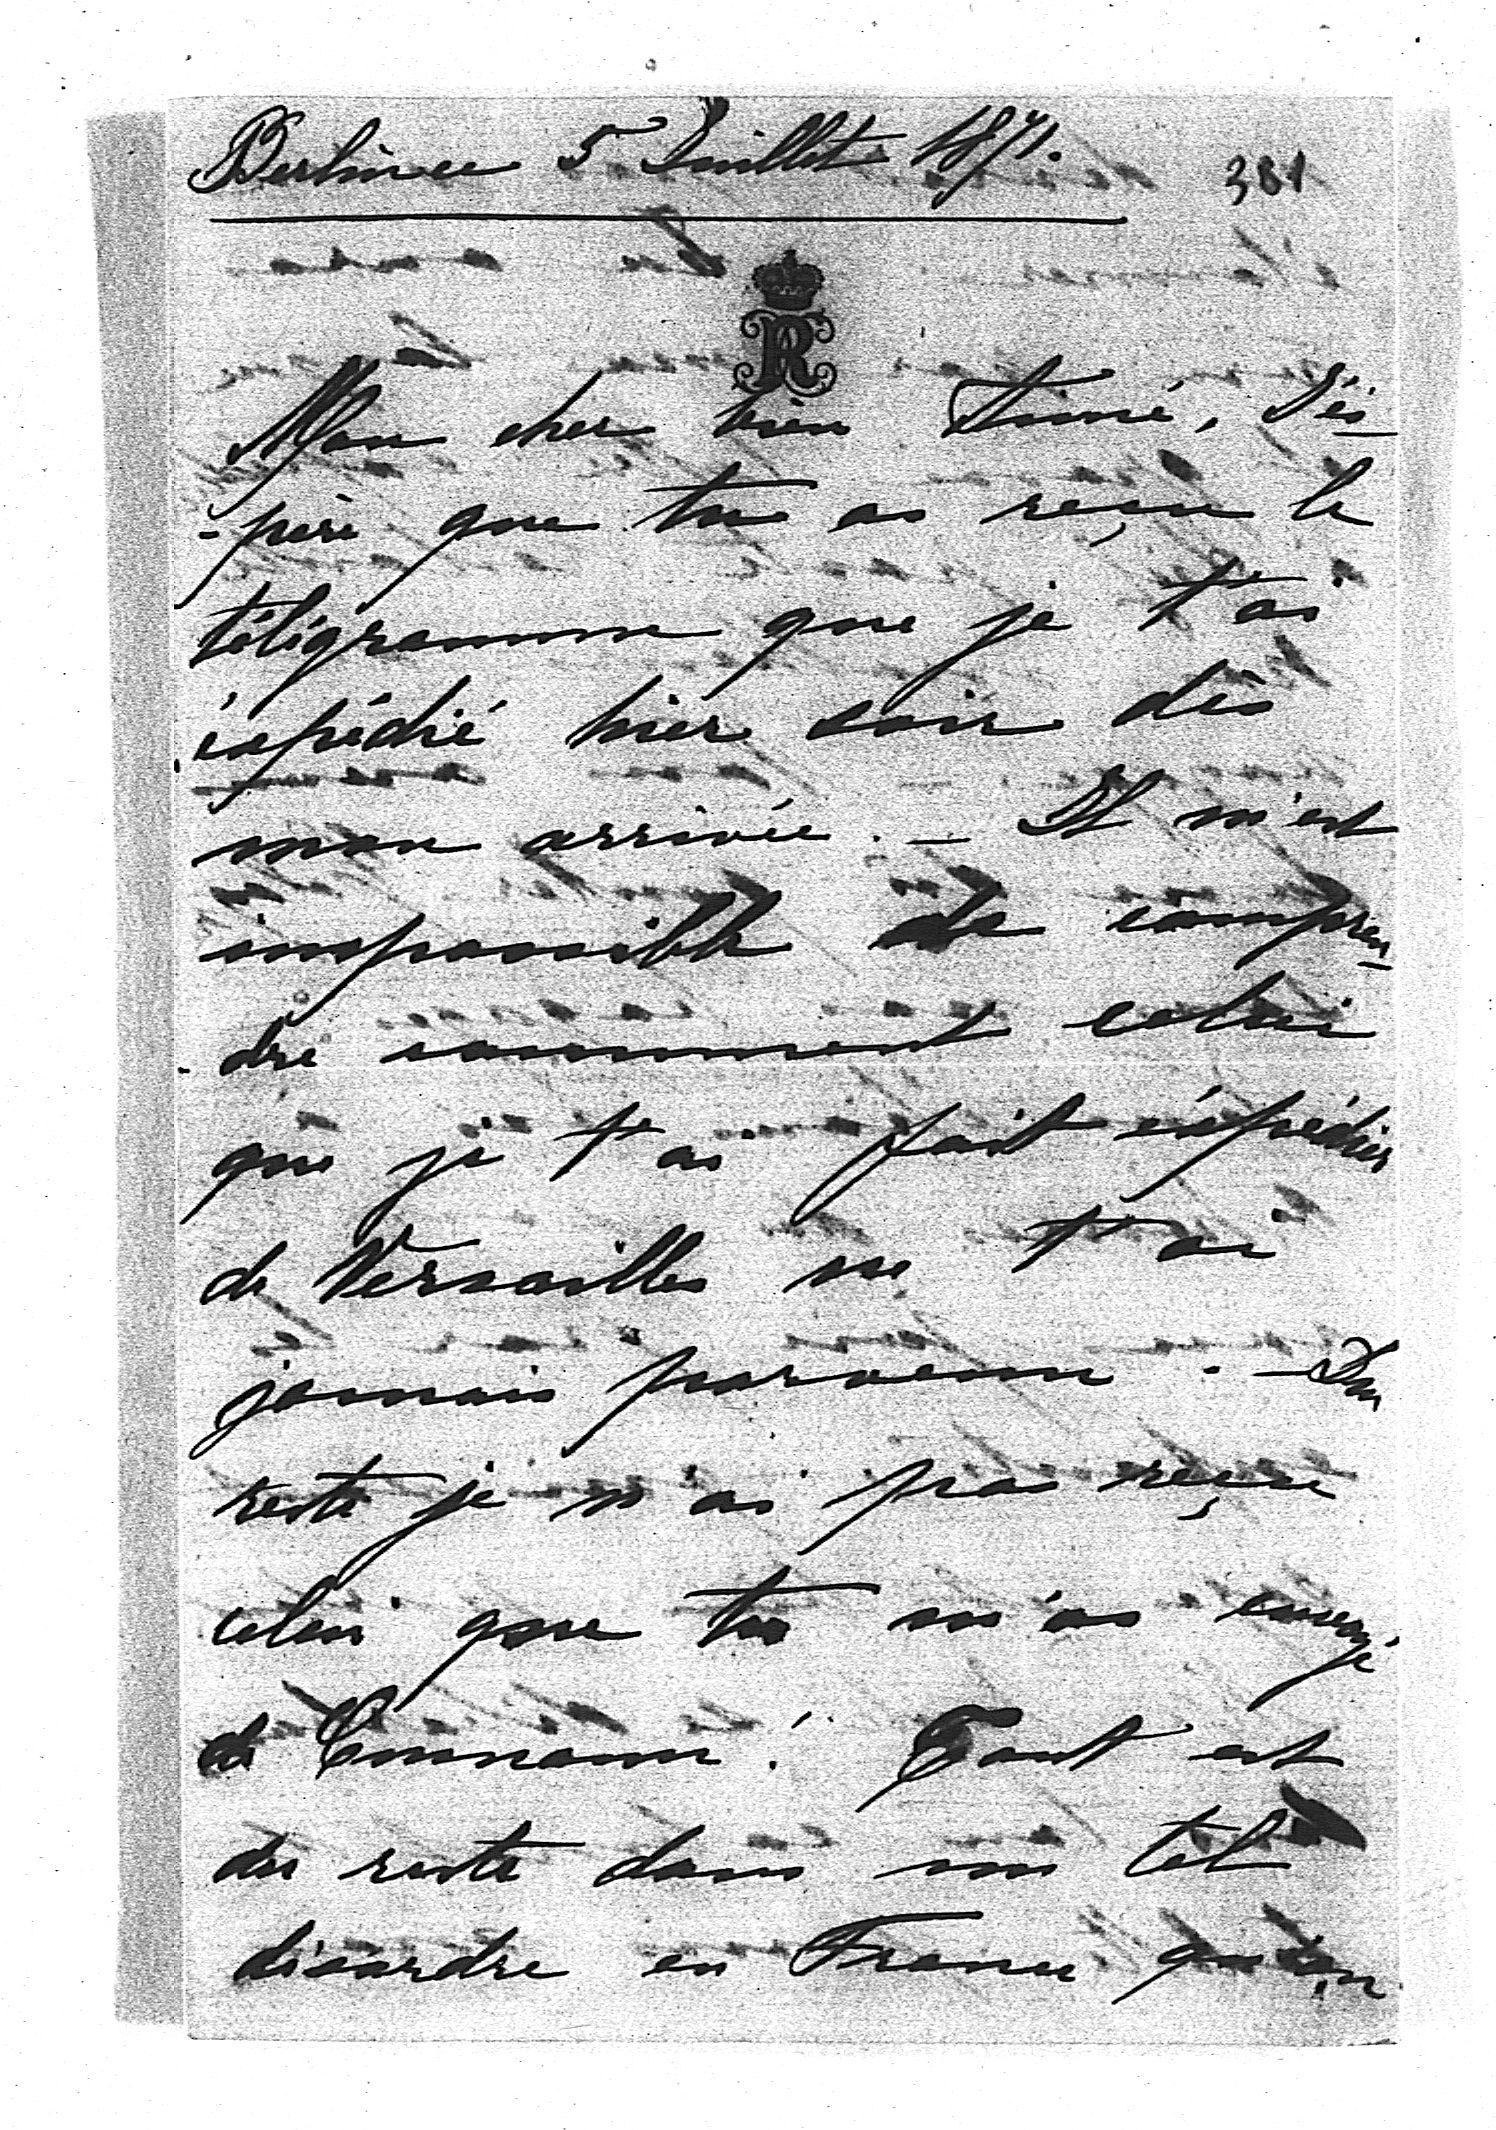 Berlin ce 5 Juillet 1871.
381
R
Mon cher bien Aimé, J'és-
-père que tu as reçu le
télégramme que je t'ai
éxpédié hier soir dès
mon arrivée. – Il m'est
impossible de compren-
-dre comment celui
que je t'ai fait éxpédier
de Versailles ne t'ai
jamais parvenu. – Du
reste je n'ai pas reçu
celui que tu m'as envoyé
de! Tout est
du reste dans un tel
désordre en France qu'on